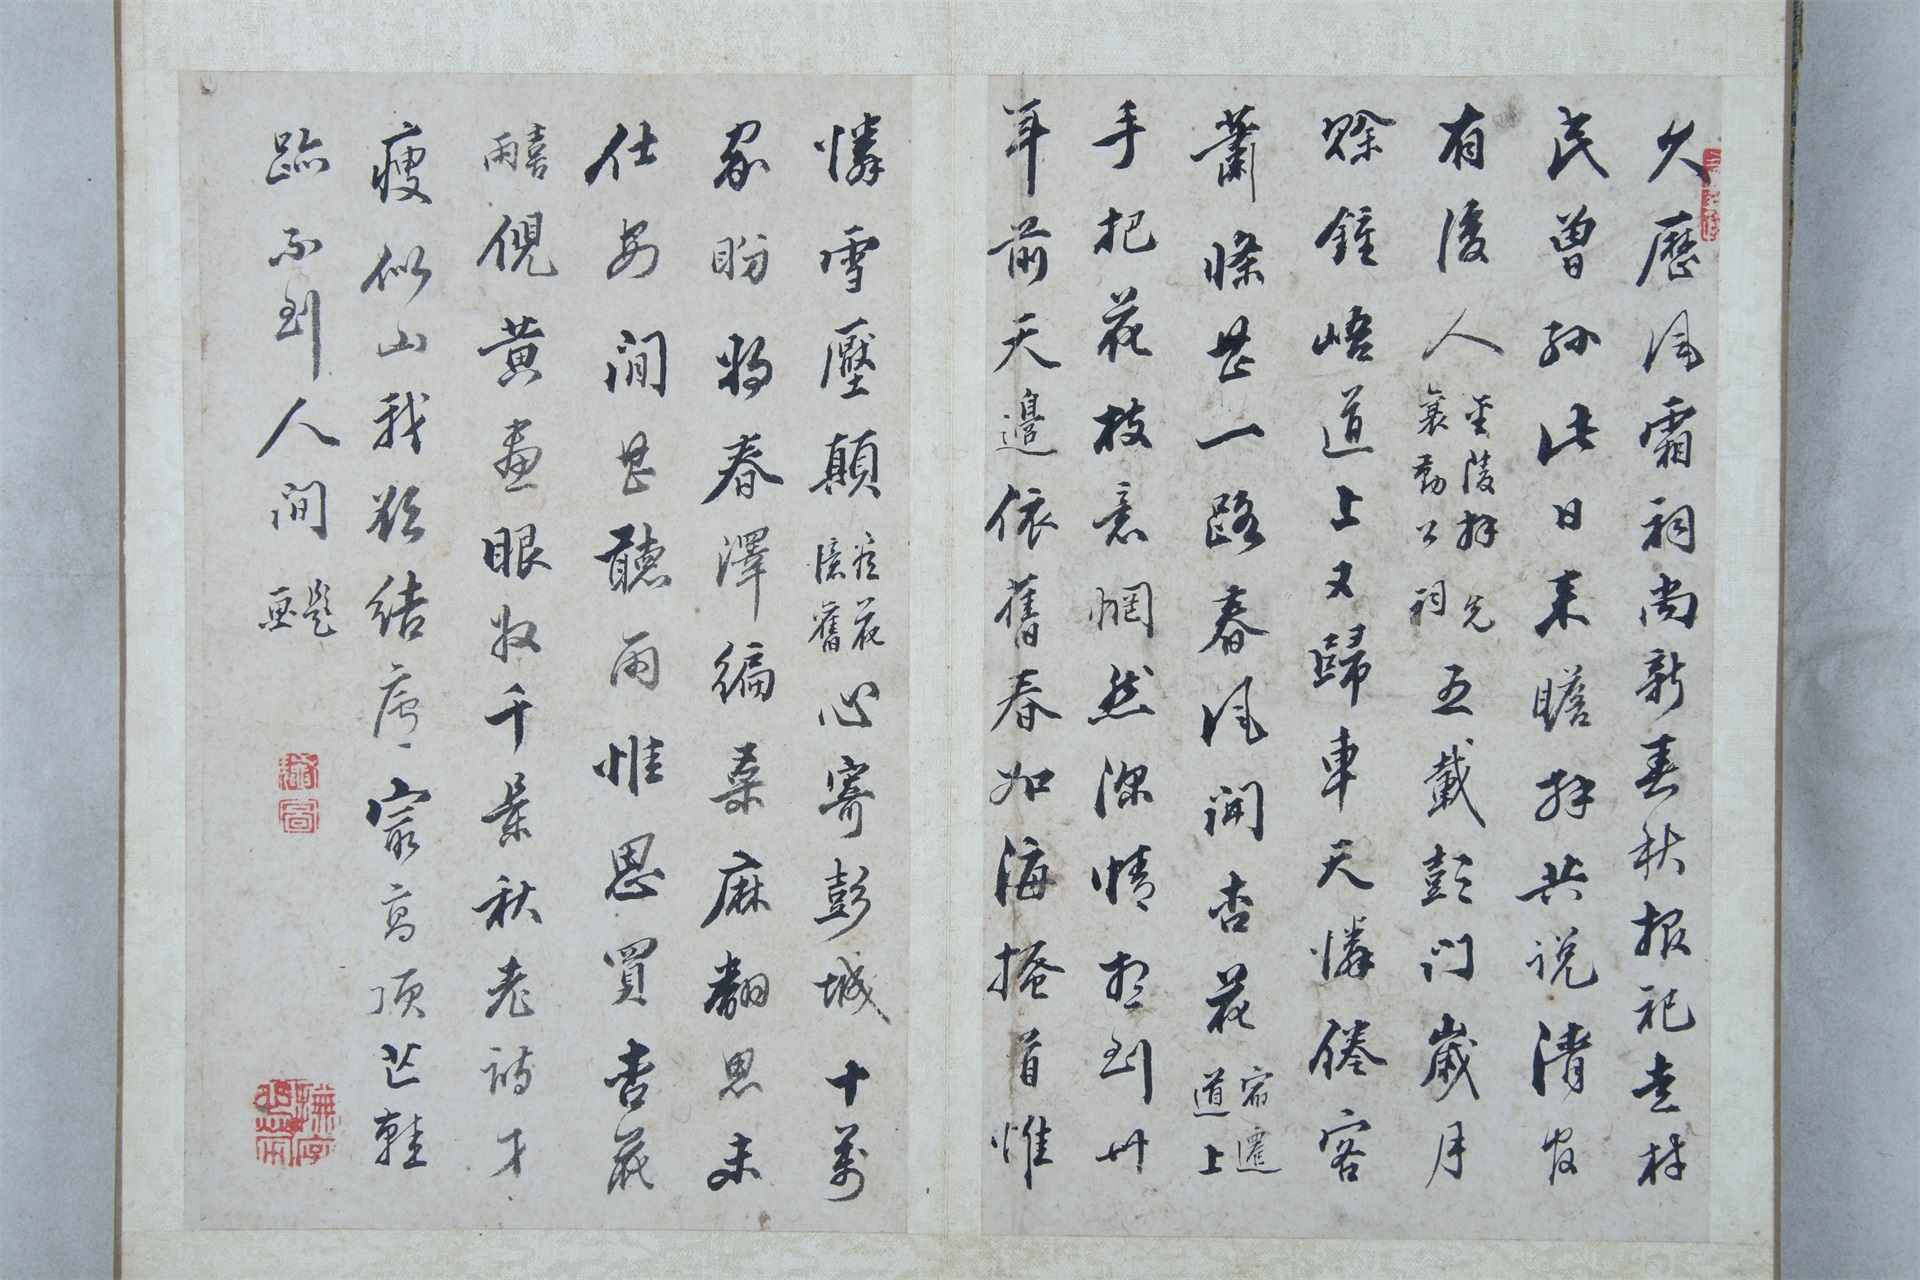 久歷風霜祠尚新春秋報祀走村
民曾孫此日來瞻拜共說清官
有後人
金陵拜先
襄勤公祠
五載彭門歲月
賒鍾峿道上又歸車天憐倦客
蕭條甚一路春風開杏花
宿遷
道上
手把花枝意惘然深情想到卅
年前天邊依舊春如海搔首惟
憐雪壓顛
杏花
憶舊
心寄彭城十萬
家盼將春澤徧桑麻翻思未
仕安閒甚聽雨惟思買杏花
喜雨
倪黃畫眼收千景秋老詩才
瘦似山我欲結廬最高頂芒鞋
跡不到人間
題
畫